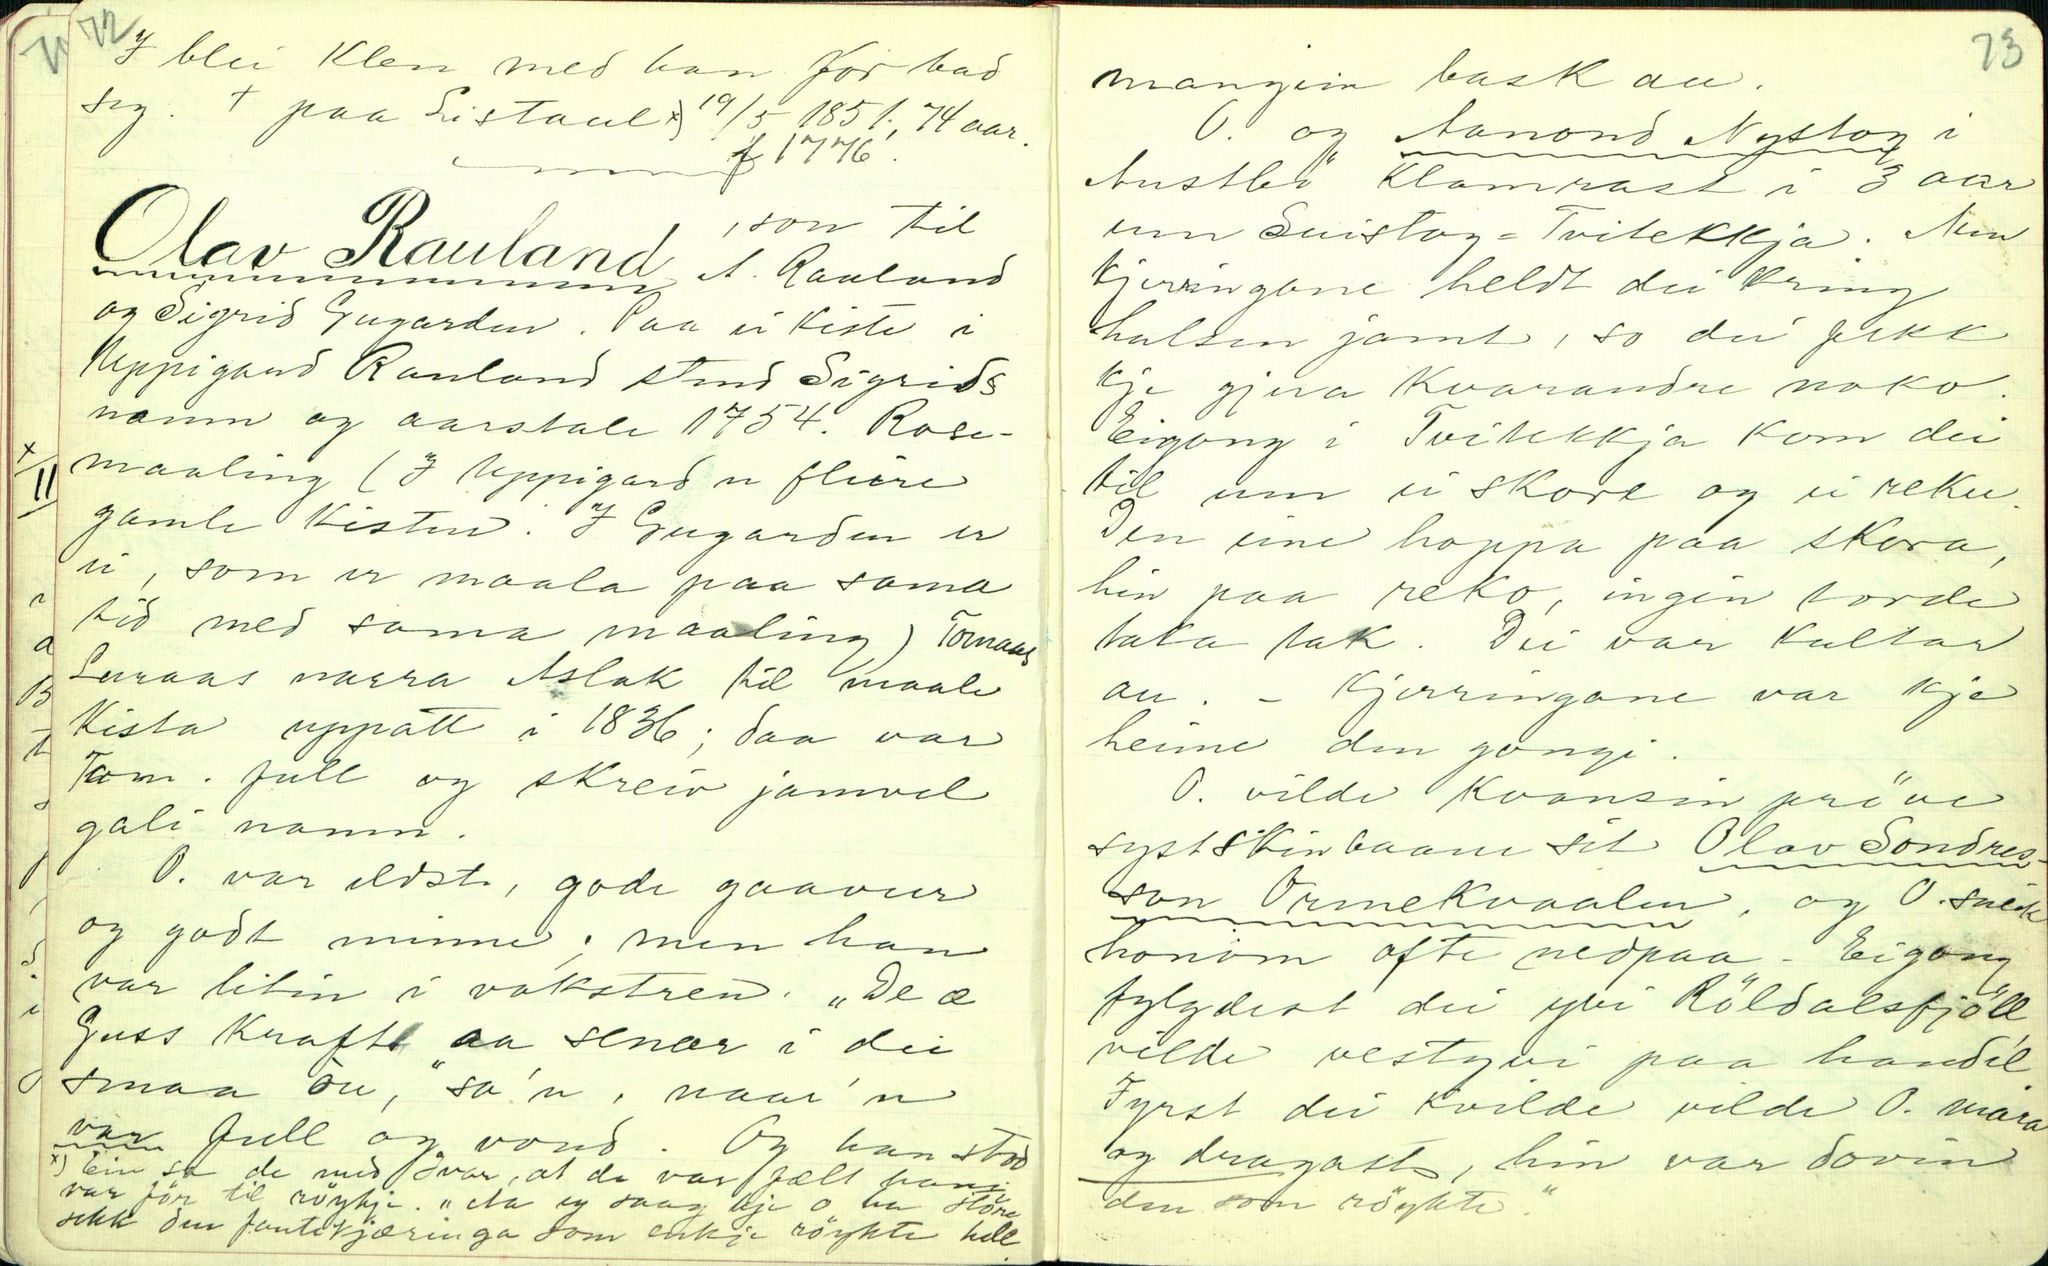 72
I blei klen med han før bad
seg. † paa Listaul x) 19/5 1851., 74 aar.
f 1776.
Olav Rauland, son til
A. Rauland
og Sigrid Gugarden. Paa ei kiste i
Uppigard Rauland stend Sigrids
namn og aarstale 1754. Rose-
maaling (I Uppigard er fleire
gamle kistur. I Gugarden er
ei, som er maala paa sama
tid med sama maaling) Tomaas
Luraas narra Aslak til maale
Kista uppatt i 1836; daa var
Tom. full og skreiv jamvel
gali namn.
O. var eldst, gode gaavur
og godt minne; men han
var litin i vokstren. "De æ
Guss kraft aa senær i dei
smaa òu," sa'n, naar'n
var full og vond. Og han stod
x) Ein sa de med Ivar, at da var fælt hans
var før til røykje. "Aa eg saag kje o ha støre
sekk den fantekjæringa som enkje røykte hell
73
mangein bask au.
O. og Aanond Nystog i
Austbö klamrast i 3 aar
um Suistog-Tvitekkja. Men
kjerringane heldt dei kring
halsen jamt, so dei fekk
kje gjera kvarandre noko.
Eigong i Tvitekkja kom dei
til um ei skore og ei reku.
Den eine hoppa paa skora,
hin paa reko, ingin torde
taka tak. Dei var kultar
au. - Kjerringane var kje
heime den gongi.
O. vilde kvansin pröve
systskinbaane sit Olav Sondres-
son Ormekvaalen, og O. sleik
honom ofte nedpaa - Eigong
fylgdest dei yvi Röldalsfjöll,
vilde vestyvi paa handil.
Fyrst dei kvilde vilde O. mara
og dragast, hin var dovin
den som röykte."